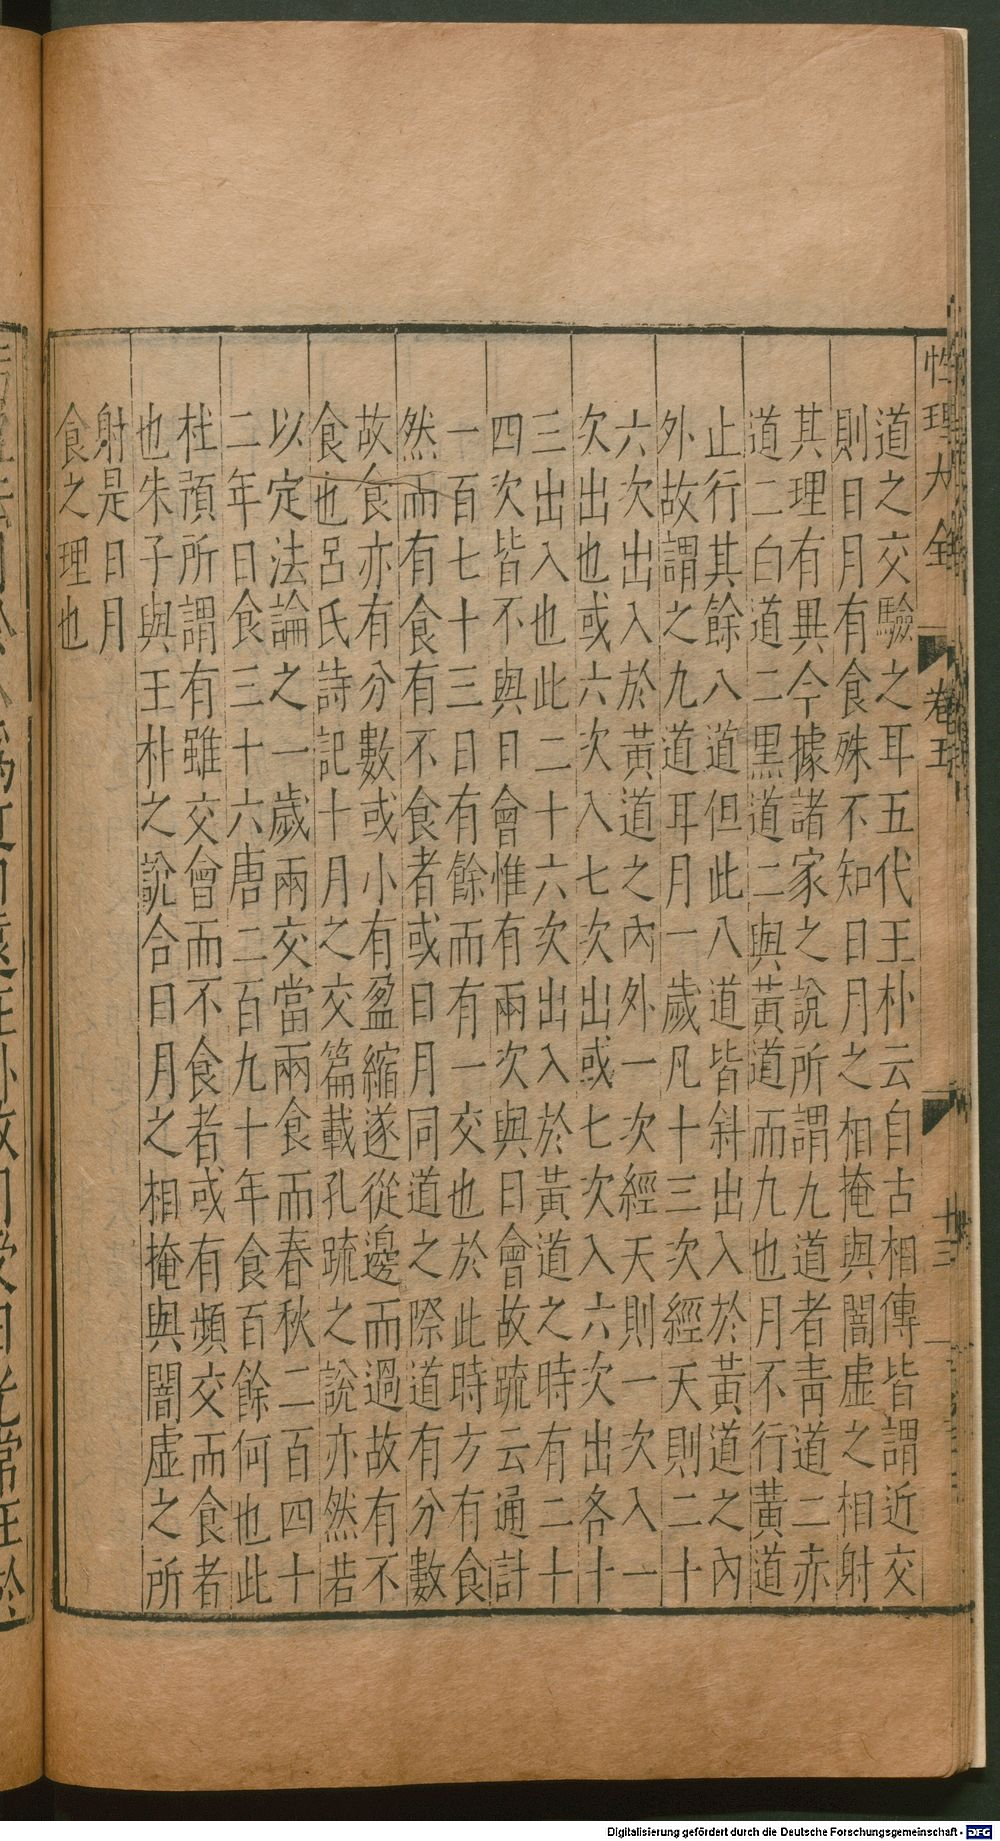 性理大全 卷五 十三
道之交驗之耳五代王朴云自古相傳皆謂近交
則日月有食殊不知日月之相掩與闇虛之相射
其理有異今據諸家之說所謂九道者青道二赤
道二白道二黑道二與黃道而九也月不行黃道
止行其餘八道但此八道皆斜出入於黃道之內
外故謂之九道耳月一歲凡十三次經天則二十
六次出入於黃道之內外一次經天則一次入一
次出也或六次入七次出或七次入六次出各十
三出入也此二十六次出入於黃道之時有二十
四次皆不與日會惟有兩次與日會故䟽云通計
一百七十三日有餘而有一交也於此時方有食
然而有食有不食者或日月同道之際道有分數
故食亦有分數或小有盈縮遂從邊而過故有不
食也呂氏詩記十月之交篇載孔䟽之說亦然若
以定法論之一歲兩交當兩食而春秋二百四十
二年日食三十六唐二百九十年食百餘何也此
杜預所謂有雖交會而不食者或有頻交而食者
也朱子與王朴之說合日月之相掩與闇虛之所
射是日月
食之理也
Digitalisierung gefördert durch die Deutsche Forschungsgemeinschaft - DFG